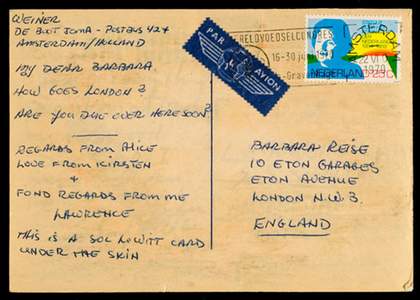 WEINER
DE BOOT JOMA - POSTBUS 424
AMSTERDAM/HOLLAND
MY DEAR BARBARA
HOW GOES LONDON?
ARE YOU DUE OVER HERE SOON?
REGARDS FROM ALICE
LOVE FROM KIRSTEN
+
FOND REGARDS FROM ME
LAWRENCE
THIS IS A SOL LEWITT CARD
UNDER THE SKIN
PAR AVION
WERELDVOEDSELCONGRES
16-30
AMSTERDAM
22 VI
1970
NEDERLAND
BARBARA REISE
10 ETON GARAGES
ETON AVENUE
LONDON N.W.3.
ENGLAND